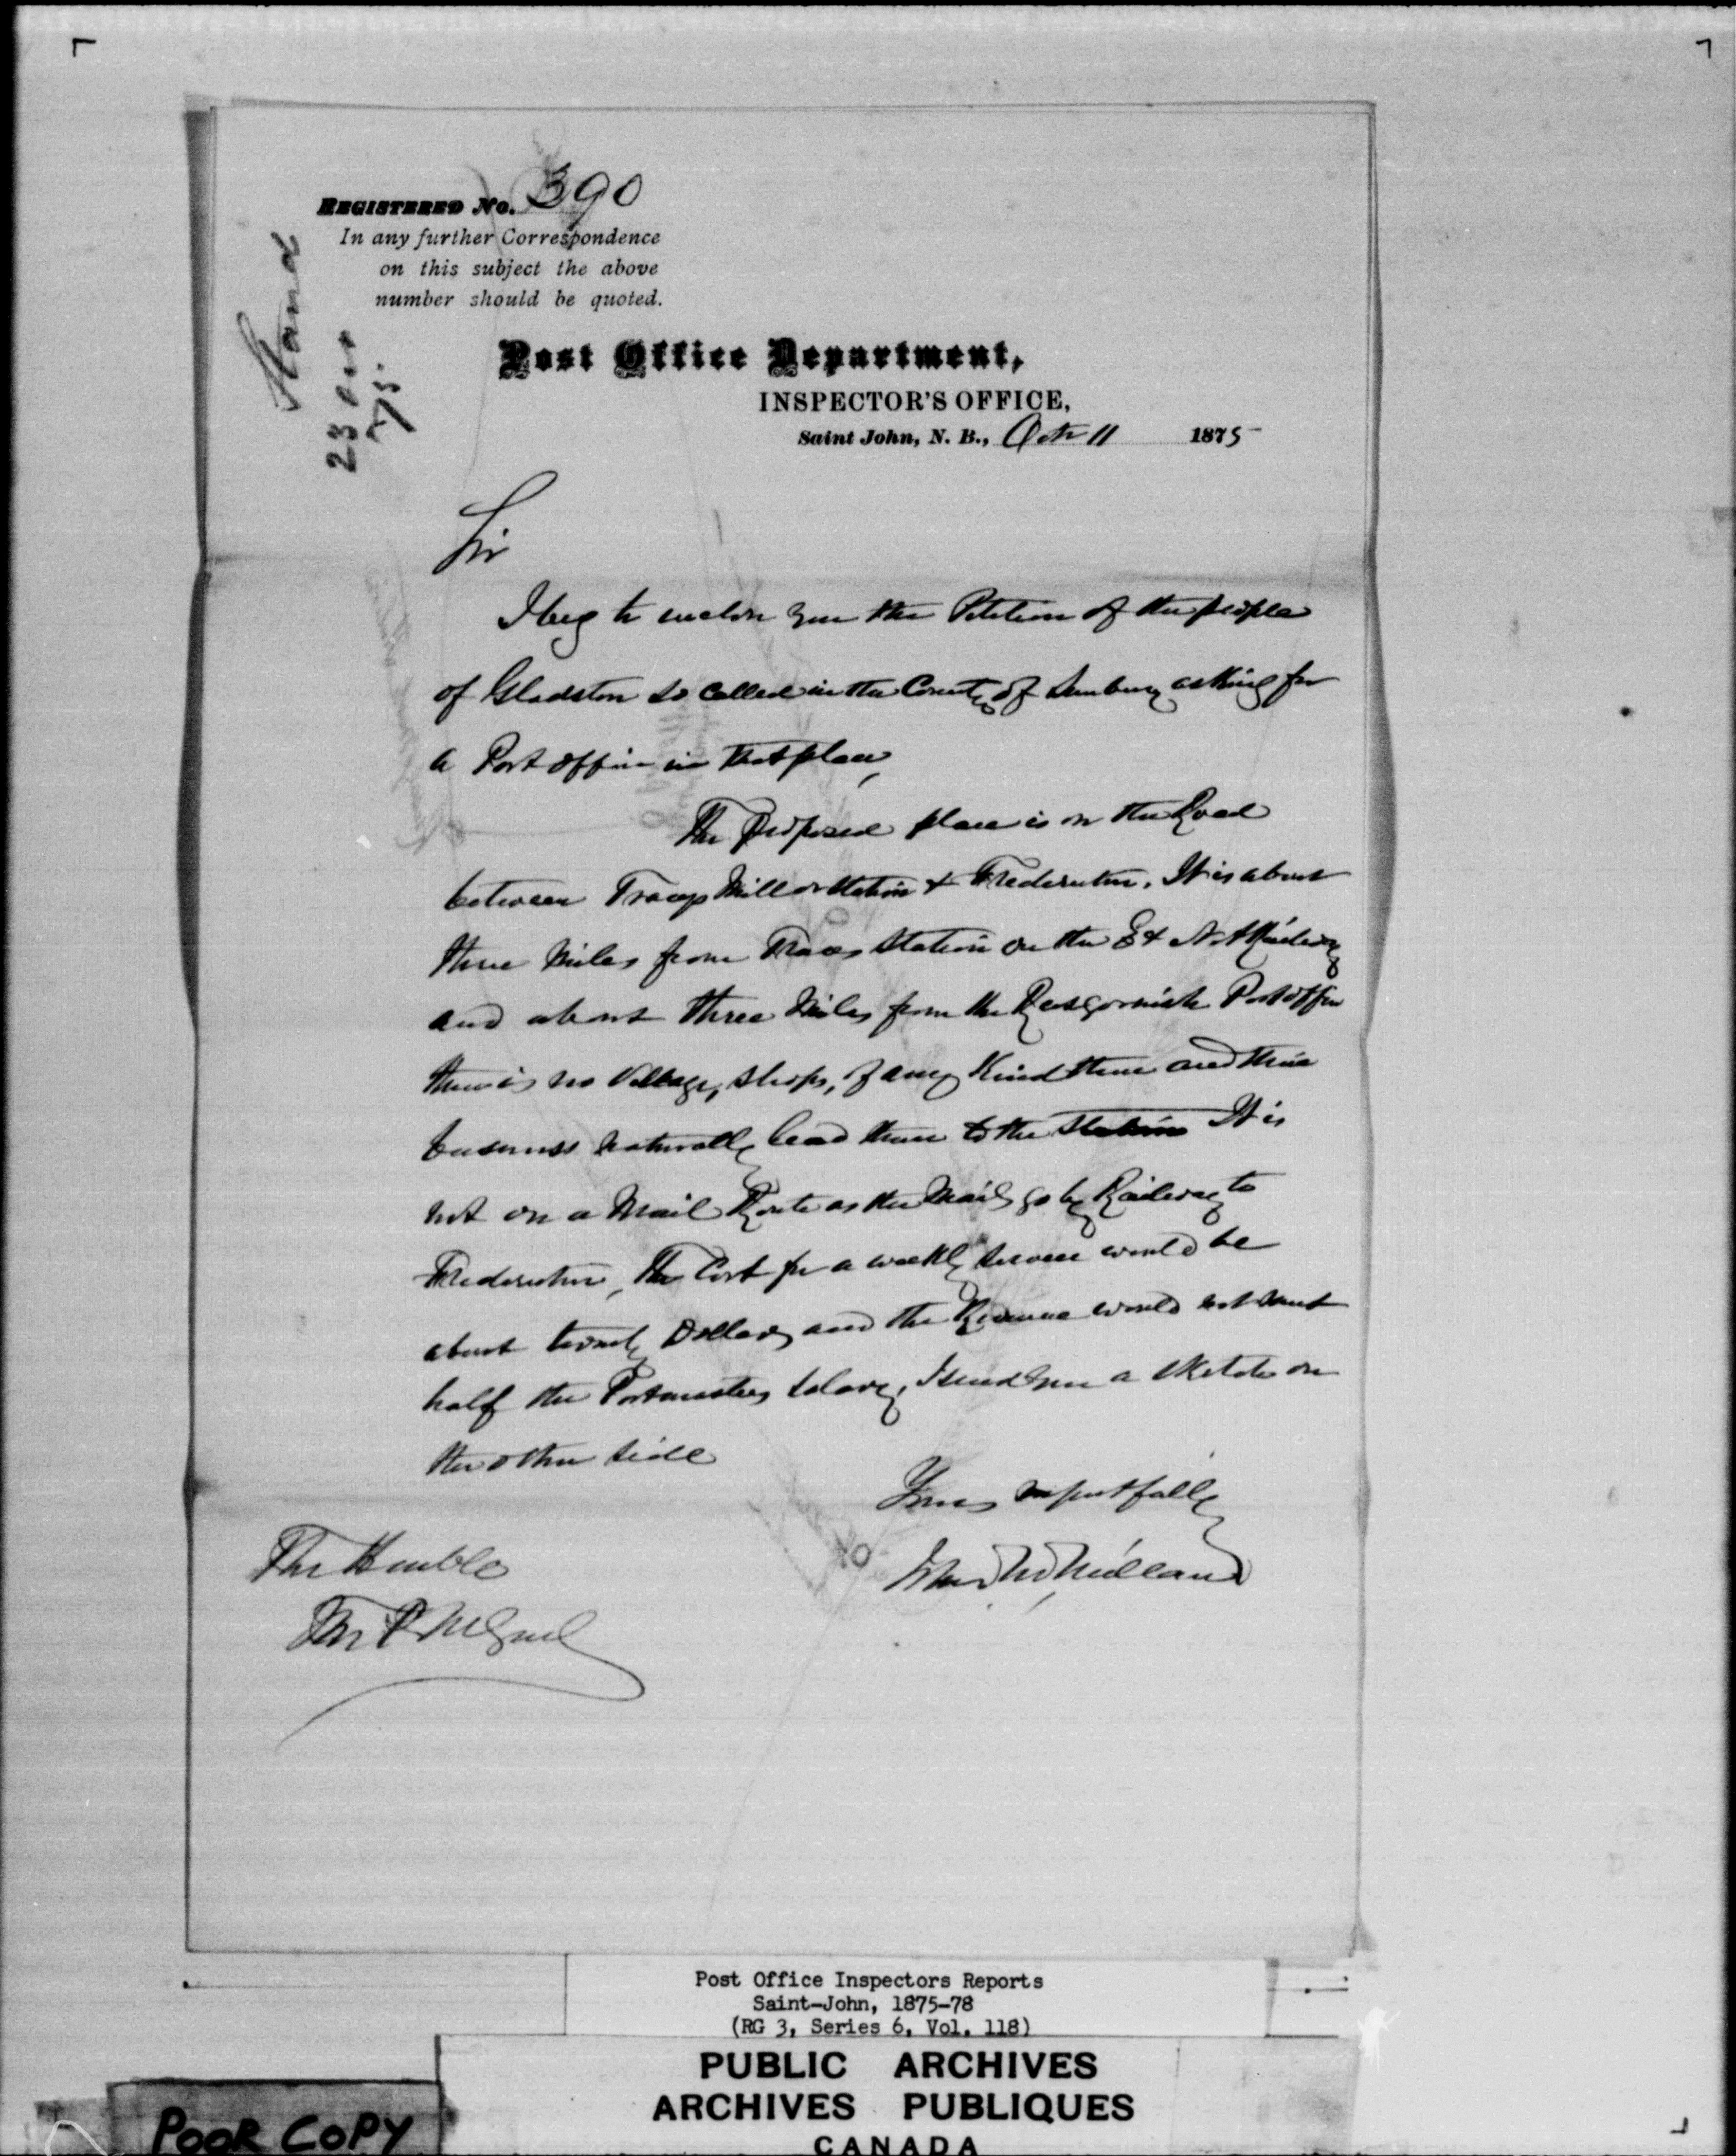 REGISTERED No. 390
In any further Correspondence
on this subject the above
number should be quoted.
Stand
23 Oct
75.
Post Office Department,
INSPECTOR'S OFFICE,
Saint John, N. B., Octr 11 1875
Sir
I beg to enclose you the Petition of the people
of Gladston so called in the County of Sunbury asking for
a Post office in that place,
The proposed place is on the Road
between Tracys Mill or Station & Fredericton. It is about
three Miles from Tracys Station on the E & N A Railway
and about three Miles from the Rusagornish Post office
there is no Village, shops, of any Kind there and their
business naturally lead them to the Station It is
not on a Mail Route as the Mails go by Railway to
Fredericton, The Cost for a weekly service would be
about twenty Dollars and the Revenue would not meet
half the Postmasters salary, I send you a sketch on
the other side
Yours respectfully
John McMillan
The Honble
The P M Genl
Post Office Inspectors Reports
Saint-John, 1875-78
(RG 3, Series 6, Vol. 118)
PUBLIC ARCHIVES
ARCHIVES PUBLIQUES
CANADA
POOR COPY